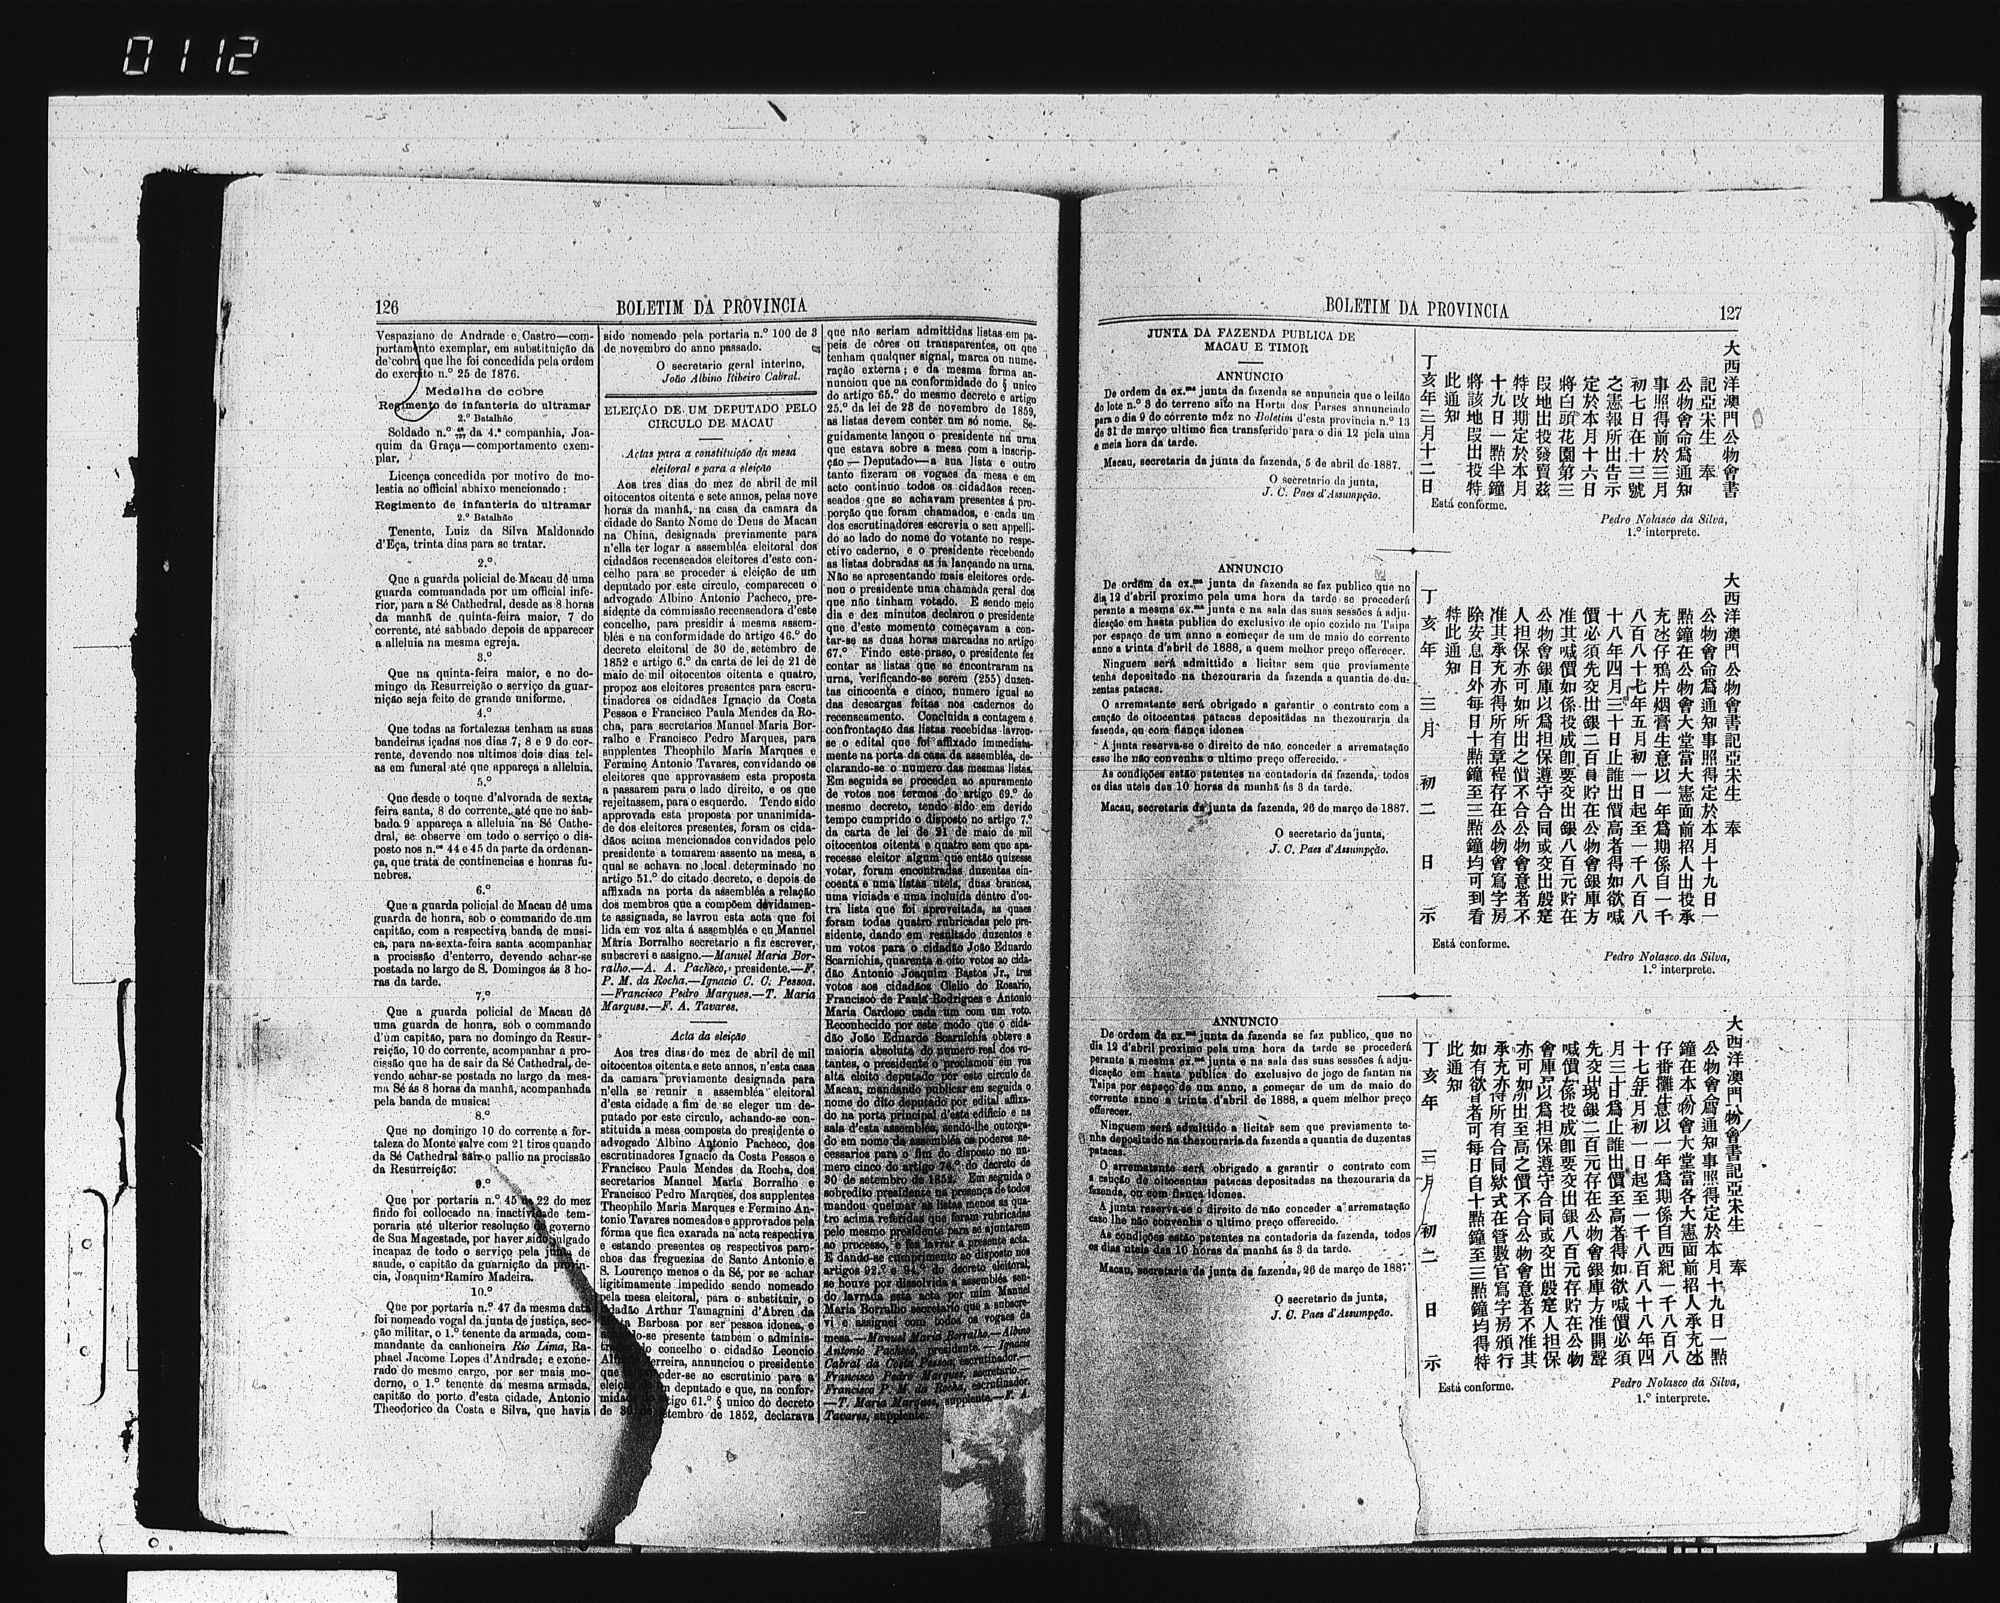 0112
126
BOLETIM DA PROVINCIA
Vespaziano de Andrade e Castro—com-
portamento exemplar, em substituição da
de cobre que lhe foi concedida pela ordem
do exercito n.º 25 de 1876.
Medalha de cobre
Regimento de infanteria do ultramar
2.º Batalhão
Soldado n.º da 4.ª companhia, Joa-
quim da Graça—comportamento exem-
plar.
Licença concedida por motivo de mo-
lestia ao official abaixo mencionado:
Regimento de infanteria do ultramar
2.º Batalhão
Tenente, Luiz da Silva Maldonado
d'Eça, trinta dias para se tratar.
2.º
Que a guarda policial de Macau dê uma
guarda commandada por um official infe-
rior, para a Sé Cathedral, desde as 8 horas
da manhã de quinta-feira maior, 7 do
corrente, até sabbado depois de apparecer
a alleluia na mesma egreja.
3.º
Que na quinta-feira maior, e no do-
mingo da Resurreição o serviço da guar-
nição seja feito de grande uniforme.
4.º
Que todas as fortalezas tenham as suas
bandeiras içadas nos dias 7, 8 e 9 do cor-
rente, devendo nos ultimos dois dias tel-
as em funeral até que appareça a alleluia.
5.º
Que desde o toque d'alvorada de sexta-
feira santa, 8 do corrente, até que no sab-
bado 9 appareça a alleluia na Sé Cathe-
dral, se observe em todo o serviço o dis-
posto nos n.os 44 e 45 da parte da ordenan-
ça, que trata de continencias e honras fu-
nebres.
6.º
Que a guarda policial de Macau dê uma
guarda de honra, sob o commando de um
capitão, com a respectiva banda de musi-
ca, para na sexta-feira santa acompanhar
a procissão d'enterro, devendo achar-se
postada no largo de S. Domingos ás 3 ho-
ras da tarde.
7.º
Que a guarda policial de Macau dê
uma guarda de honra, sob o commando
d'um capitão, para no domingo da Resur-
reição, 10 do corrente, acompanhar a pro-
cissão que ha de sair da Sé Cathedral, de-
vendo achar-se postada no largo da mes-
ma Sé ás 8 horas da manhã, acompanhada
pela banda de musica.
8.º
Que no domingo 10 do corrente a for-
taleza do Monte salve com 21 tiros quando
da Sé Cathedral sair o pallio na procissão
da Resurreição.
9.º
Que por portaria n.º 45 de 22 do mez
findo foi collocado na inactividade tem-
poraria até ulterior resolução do governo
de Sua Magestade, por haver sido julgado
incapaz de todo o serviço pela junta de
saude, o capitão da guarnição da provin-
cia, Joaquim Ramiro Madeira.
10.º
Que por portaria n.º 47 da mesma data
foi nomeado vogal da junta de justiça, sec-
ção militar, o 1.º tenente da armada, com-
mandante da canhoneira Rio Lima, Ra-
phael Jacome Lopes d'Andrade; e exone-
rado do mesmo cargo, por ser mais mo-
derno, o 1.º tenente da mesma armada,
capitão do porto d'esta cidade, Antonio
Theodorico da Costa e Silva, que havia
sido nomeado pela portaria n.º 100 de 3
de novembro do anno passado.
O secretario geral interino,
João Albino Ribeiro Cabral.
ELEIÇÃO DE UM DEPUTADO PELO
CIRCULO DE MACAU
Actas para a constituição da mesa
eleitoral e para a eleição
Aos tres dias do mez de abril de mil
oitocentos oitenta e sete annos, pelas nove
horas da manhã, na casa da camara da
cidade do Santo Nome de Deus de Macau
na China, designada previamente para
n'ella ter logar a assembléa eleitoral dos
cidadãos recenseados eleitores d'este con-
celho para se proceder á eleição de um
deputado por este circulo, compareceu o
advogado Albino Antonio Pacheco, pre-
sidente da commissão recenseadora d'este
concelho, para presidir á mesma assem-
bléa e na conformidade do artigo 46.º do
decreto eleitoral de 30 de setembro de
1852 e artigo 6.º da carta de lei de 21 de
maio de mil oitocentos oitenta e quatro,
propoz aos eleitores presentes para escru-
tinadores os cidadãos Ignacio da Costa
Pessoa e Francisco Paula Mendes da Ro-
cha, para secretarios Manuel Maria Bor-
ralho e Francisco Pedro Marques, para
supplentes Theophilo Maria Marques e
Fermino Antonio Tavares, convidando os
eleitores que approvassem esta proposta
a passarem para o lado direito, e os que
rejeitassem, para o esquerdo. Tendo sido
approvada esta proposta por unanimida-
de dos eleitores presentes, foram os cida-
dãos acima mencionados convidados pelo
presidente a tomarem assento na mesa, a
qual se achava no local determinado no
artigo 51.º do citado decreto, e depois de
affixada na porta da assembléa a relação
dos membros que a compõem devidamen-
te assignada, se lavrou esta acta que foi
lida em voz alta á assembléa e eu Manuel
Maria Borralho secretario a fiz escrever,
subscrevi e assigno.—Manuel Maria Bor-
ralho.—A. A. Pacheco, presidente.—F.
P. M. da Rocha.—Ignacio C. C. Pessoa.
—Francisco Pedro Marques.—T. Maria
Marques.—F. A. Tavares.
Acta da eleição
Aos tres dias do mez de abril de mil
oitocentos oitenta e sete annos, n'esta casa
da camara previamente designada para
n'ella se reunir a assembléa eleitoral
d'esta cidade a fim de se eleger um de-
putado por este circulo, achando-se con-
stituida a mesa composta do presidente o
advogado Albino Antonio Pacheco, dos
escrutinadores Ignacio da Costa Pessoa e
Francisco Paula Mendes da Rocha, dos
secretarios Manuel Maria Borralho e
Francisco Pedro Marques, dos supplentes
Theophilo Maria Marques e Fermino An-
tonio Tavares nomeados e approvados pela
fórma que fica exarada na acta respectiva
e estando presentes os respectivos paro-
chos das freguezias de Santo Antonio e
S. Lourenço menos o da Sé, por se achar
ligitimamente impedido sendo nomeado
pela mesa eleitoral, para o substituir, o
cidadão Arthur Tamagnini d'Abreu da
Barbosa por ser pessoa idonea, e
do-se presente tambem o adminis-
concelho o cidadão Leoncio
erreira, annunciou o presidente
que der-se ao escrutinio para a
eleição deputado e que, na confor-
midade artigo 61.º § unico do decreto
de 30 setembro de 1852, declarava
que não seriam admittidas listas em pa-
peis de côres ou transparentes, ou que
tenham qualquer signal, marca ou nume-
ração externa; e da mesma forma an-
nunciou que na conformidade do § unico
do artigo 65.º do mesmo decreto e artigo
25.º da lei de 23 de novembro de 1859,
as listas devem conter um só nome. Se-
guidamente lançou o presidente na urna
que estava sobre a mesa com a inscrip-
ção—Deputado—a sua lista e outro
tanto fizeram os vogaes da mesa e em
acto continuo todos os cidadãos recen-
seados que se achavam presentes á pro-
porção que foram chamados, e cada um
dos escrutinadores escrevia o seu appelli-
do ao lado do nome do votante no respe-
ctivo caderno, e o presidente recebendo
as listas dobradas as ia lançando na urna.
Não se apresentando mais eleitores orde-
nou o presidente uma chamada geral dos
que não tinham votado. E sendo meio
dia e dez minutos declarou o presidente
que d'este momento começavam a con-
tar-se as duas horas marcadas no artigo
67.º Findo este praso, o presidente fez
contar as listas que se encontraram na
urna, verificando-se serem (255) duzen-
tas cincoenta e cinco, numero igual ao
das descargas feitas nos cadernos do
recenseamento. Concluida a contagem e
confrontação das listas recebidas lavrou-
se o edital que foi affixado immediata-
mente na porta da casa da assembléa, de-
clarando-se o numero das mesmas listas.
Em seguida se procedeu ao apuramento
de votos nos termos do artigo 69.º do
mesmo decreto, tendo sido em devido
tempo cumprido o disposto no artigo 7.º
da carta de lei de 21 de maio de mil
oitocentos oitenta e quatro sem que apa-
recesse eleitor algum que então quisesse
votar, foram encontradas duzentas cin-
coenta e uma listas uteis, duas brancas,
uma viciada e uma incluida dentro d'ou-
tra lista que foi aproveitada, as quaes
foram todas quatro rubricadas pelo pre-
sidente, dando em resultado duzentos e
um votos para o cidadão João Eduardo
Scarnichia, quarenta e oito votos ao cida-
dão Antonio Joaquim Bastos Jr., tres
votos aos cidadãos Clelio do Rosario,
Francisco de Paula Rodrigues e Antonio
Maria Cardoso cada um com um voto.
Reconhecido por este modo que o cida-
dão João Eduardo Scarnichia obteve a
maioria absoluta do numero real dos vo-
tantes, o presidente o proclamou em voz
alta eleito deputado por este circulo de
Macau, mandando publicar em seguida o
nome do dito deputado por edital affixa-
do na porta principal d'este edificio e na
sala d'esta assembléa, sendo-lhe outorga-
do em nome da assembléa os poderes ne-
cessarios para o fim do disposto no nu-
mero cinco do artigo 76.º do decreto de
30 de setembro de 1852. Em seguida o
sobredito presidente na presença de todos
mandou queimar as listas menos as qua-
tro acima referidas que foram rubricadas
pelo mesmo presidente para se ajuntarem
ao processo, e fez lavrar a presente acta.
E dando-se cumprimento ao disposto nos
artigos 92.º e 94.º do decreto eleitoral,
se houve por dissolvida a assembléa sen-
do lavrada esta acta por mim Manuel
Maria Borralho secretario que a subscre-
vi e assignei com todos os vogaes da
mesa.—Manuel Maria Borralho.—Albino
Antonio Pacheco, presidente.—Ignacio
Cabral da Costa Pessoa, escrutinador.—
Francisco Pedro Marques, secretario.—
Francisco P. M. da Rocha, escrutinador.
—T. Maria Marques, supplente.—F. A.
Tavares, supplente.
BOLETIM DA PROVINCIA
127
JUNTA DA FAZENDA PUBLICA DE
MACAU E TIMOR
ANNUNCIO
De ordem da ex.ma junta da fazenda se annuncia que o leilão
do lote n.º 3 do terreno sito na Horta dos Parses annunciado
para o dia 9 do corrente mez no Boletim d'esta provincia n.º 13
de 31 de março ultimo fica transferido para o dia 12 pela uma
e meia hora da tarde.
Macau, secretaria da junta da fazenda, 5 de abril de 1887.
O secretario da junta,
J. C. Paes d'Assumpção.
大西洋澳門公物會書
記亞宋生 奉
公物會命爲通知
事照得前於三月
初七日在十三號
之憲報所出告示
定於本月十六日
將白頭花園第三
叚地出投發賣茲
特改期定於本月
十九日一點半鐘
將該地叚出投特
此通知
丁亥年三月十二日
Está conforme.
Pedro Nolasco da Silva,
1.º interprete.
ANNUNCIO
De ordem da ex.ma junta da fazenda se faz publico que no
dia 12 d'abril proximo pela uma hora da tarde se procederá
perante a mesma ex.ma junta e na sala das suas sessões á adju-
dicação em hasta publica do exclusivo de opio cozido na Taipa
por espaço de um anno a começar de um de maio do corrente
anno a trinta d'abril de 1888, a quem melhor preço offerecer.
Ninguem será admittido a licitar sem que previamente
tenha depositado na thezouraria da fazenda a quantia de du-
zentas patacas.
O arrematante será obrigado a garantir o contrato com a
caução de oitocentas patacas depositadas na thezouraria da
fazenda, ou com fiança idonea
A junta reserva-se o direito de não conceder a arrematação
caso lhe não convenha o ultimo preço offerecido.
As condições estão patentes na contadoria da fazenda, todos
os dias uteis das 10 horas da manhã ás 3 da tarde.
Macau, secretaria da junta da fazenda, 26 de março de 1887.
O secretario da junta,
J. C. Paes d'Assumpção.
大西洋澳門公物會書記亞宋生 奉
公物會命爲通知事照得定於本月十九日一
點鐘在公物會大堂當大憲面前招人出投承
充氹仔鴉片烟膏生意以一年爲期係自一千
八百八十七年五月初一日起至一千八百八
十八年四月三十日止誰出價高者得如欲喊
價必須先交出銀二百員貯在公物會銀庫方
准其喊價如係投成卽要交出銀八百元貯在
公物會銀庫以爲担保遵守合同或交出殷寔
人担保亦可如所出之價不合公物會意者不
准其承充亦得所有章程存在公物會寫字房
除安息日外每日十點鐘至三點鐘均可到看
特此通知
丁亥年三月初二日示
Está conforme.
Pedro Nolasco da Silva,
1.º interprete.
ANNUNCIO
De ordem da ex.ma junta da fazenda se faz publico, que no
dia 12 d'abril proximo pela uma hora da tarde se procederá
perante a mesma ex.ma junta e na sala das suas sessões á adju-
dicação em hasta publica do exclusivo de jogo de fantan na
Taipa por espaço de um anno, a começar de um de maio do
corrente anno a trinta d'abril de 1888, a quem melhor preço
offerecer.
Ninguem será admittido a licitar sem que previamente te-
nha depositado na thezouraria da fazenda a quantia de duzentas
patacas.
O arrematante será obrigado a garantir o contrato com
a caução de oitocentas patacas depositadas na thezouraria da
fazenda, ou com fiança idonea.
A junta reserva-se o direito de não conceder a arrematação
caso lhe não convenha o ultimo preço offerecido.
As condições estão patentes na contadoria da fazenda, todos
os dias uteis das 10 horas da manhã ás 3 da tarde.
Macau, secretaria da junta da fazenda, 26 de março de 1887
O secretario da junta,
J. C. Paes d'Assumpção.
大西洋澳門公物會書記亞宋生 奉
公物會命爲通知事照得定於本月十九日一點
鐘在本公物會大堂當各大憲面前招人承充氹
仔番攤生意以一年爲期係自西紀一千八百八
十七年五月初一日起至一千八百八十八年四
月三十日爲止誰出價至高者得如欲喊價必須
先交出現銀二百元存在公物會銀庫方准開聲
喊價係投成卽要交出銀八百元存貯在公物
會庫以爲担保遵守合同或交出殷寔人担保
亦可如所出至高之價不合公物會意者不准其
承充亦得所有合同欵式在管數官寫字房頒行
如有欲者可每日自十點鐘至三點鐘均得特
此通知
丁亥年三月初二日示
Está conforme.
Pedro Nolasco da Silva,
1.º interprete.